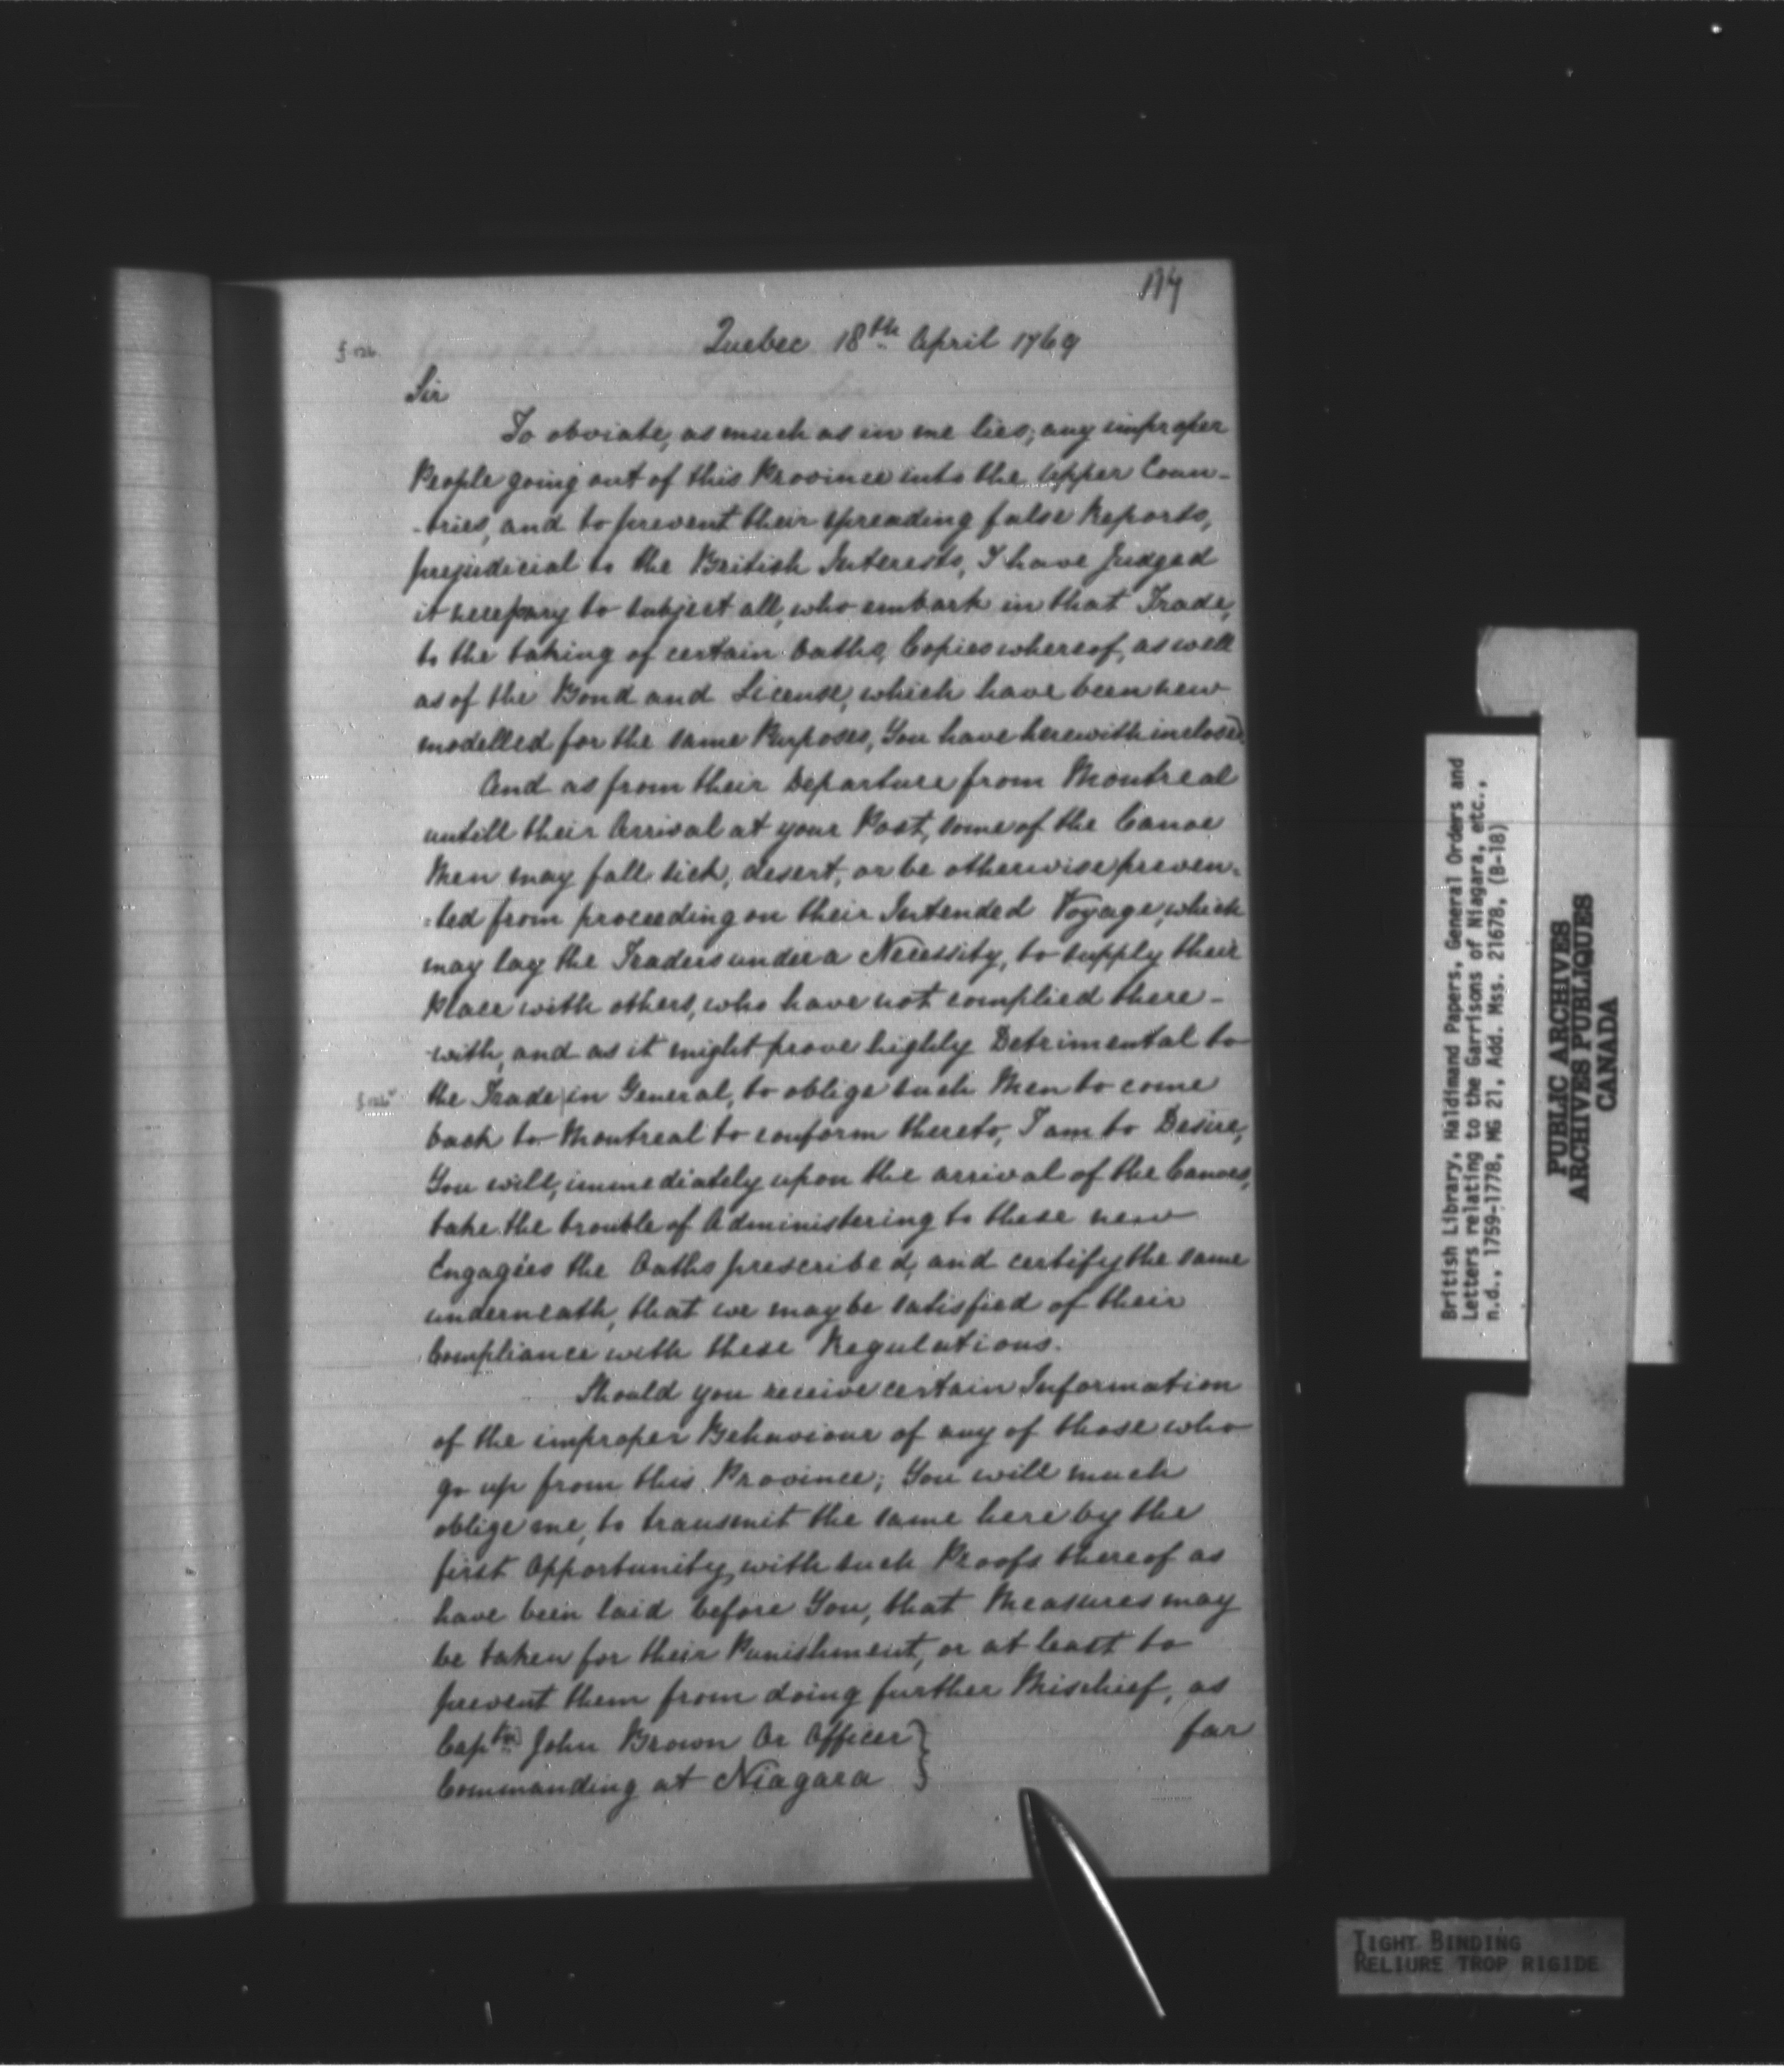 Quebec 18th April 1769
Sir
To obviate, as much as in me lies, any improper
People going out of this Province into the upper Coun-
-tries, and to prevent their spreading false Reports,
prejudicial to the British Interests, I have Judged
it necessary to subject all, who embark in that Trade,
to the taking of certain Oaths, Copies whereof, as well
as of the Bond and License, which have been new
modelled for the same Purposes, You have herewith inclosed
And as from their Departure from Montreal
untill their Arrival at your Post, some of the Canoe
Men may fall sick, desert, or be otherwise preven-
-ted from proceeding on their Intended Voyage, which
may lay the Traders under a Necessity, to supply their
Place with others, who have not complied there-
-with, and as it might prove highly Detrimental to
the Trade in General, to oblige such Men to come
back to Montreal to conform thereto, I am to Desire,
You will, immediately upon the arrival of the Canoes,
take the trouble of Administering to these new
Engagées the Oaths prescribed, and certify the same
underneath, that we may be satisfied of their
Compliance with these Regulations.
Should you receive certain Information
of the improper Behaviour of any of those who
go up from this Province; You will much
oblige me, to transmit the same here by the
first Opportunity, with such Proofs thereof as
have been laid before You, that Measures may
be taken for their Punishment, or at least to
prevent them from doing further Mischief, as
far
Captn John Brown Or Officer
Commanding at Niagara
British Library, Haldimand Papers, General Orders and
Letters relating to the Garrisons of Niagara, etc.,
n.d., 1759-1778, MG 21, Add. Mss. 21678, (B-18)
PUBLIC ARCHIVES
ARCHIVES PUBLIQUES
CANADA
TIGHT BINDING
RELIURE TROP RIGIDE